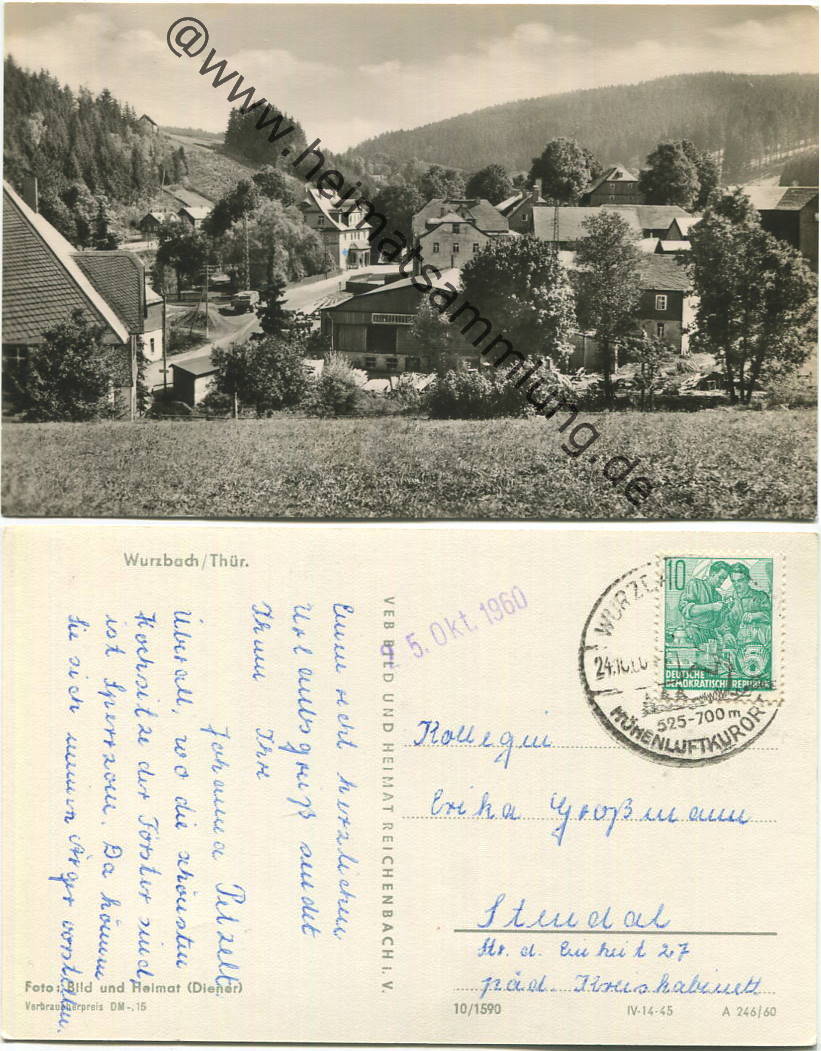 @www.heimatsammlung.de
Wurzbach/Thür.
Einen recht herzlichen
Urlaubsgruß sendet
Ihnen Ihre
Johanna
Überall, wo die schönsten
Hochsitze der Förster sind,
ist Sperrzone. Da können
Sie sich meinen Ärger vorstellen.
Foto: Bild und Heimat (Diener)
Verbraucherpreis DM -,15
VEB BILD UND HEIMAT REICHENBACH i. V.
25. Okt. 1960
WURZBACH
24.10.60
525-700m
HÖHENLUFTKURORT
10
DEUTSCHE
DEMOKRATISCHE REPUBLIK
Kollegin
Erika Großmann
Stendal
Str. d. Einheit 27
päd. Kreiskabinett
10/1590
IV-14-45
A 246/60